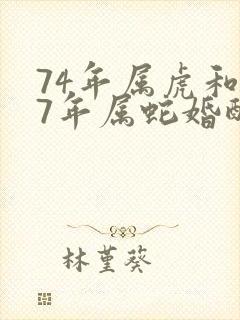 74年属虎和
7年属蛇婚配
林堇葵